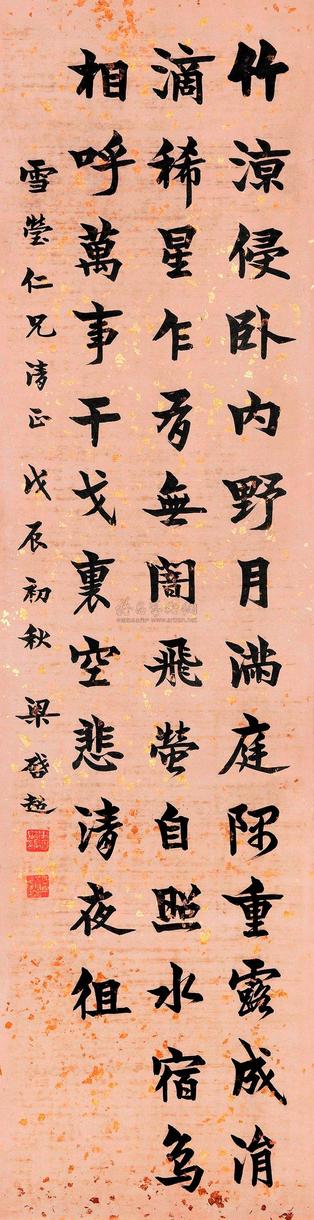 竹涼侵卧内野月滿庭隅重露成涓
滴稀星乍有無闇飛螢自照水宿鳥
相呼萬事干戈裏空悲清夜徂
雪瑩仁兄清正 戊辰初秋 梁啓超